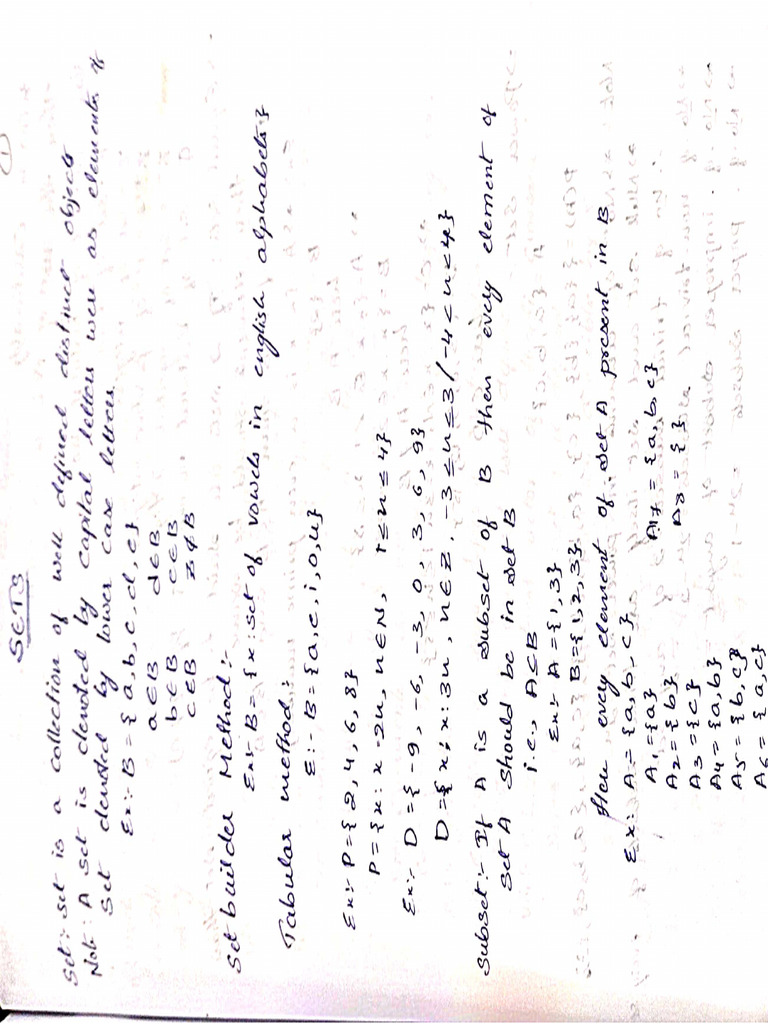 1
SETS
Set:- Set is a collection of well defined distinct objects
Note: A set is denoted by capital letters were as elements of
set denoted by lower case letters.
Ex:- B = {a, b, c, d, e}
a∈B d∈B
b∈B e∈B
c∈B z∉B
Set builder Method:-
Ex:- B = {x: set of vowels in english alphabets}
Tabular method:-
E:- B = {a, e, i, o, u}
Ex:- P = {2, 4, 6, 8}
P = {x: x = 2n, n∈N, 1≤n≤4}
Ex:- D = {-9, -6, -3, 0, 3, 6, 9}
D = {x: x: 3n, n∈Z, -3≤n≤3 / -4<n<4}
Subset:- If A is a subset of B then every element of
set A should be in set B
i.e., A⊆B
Ex:- A = {1, 3}
B = {1, 2, 3}
Here every element of set A present in B
Ex: A = {a, b, c}
A1 = {a} A7 = {a, b, c}
A2 = {b} A8 = { }
A3 = {c}
A4 = {a, b}
A5 = {b, c}
A6 = {a, c}